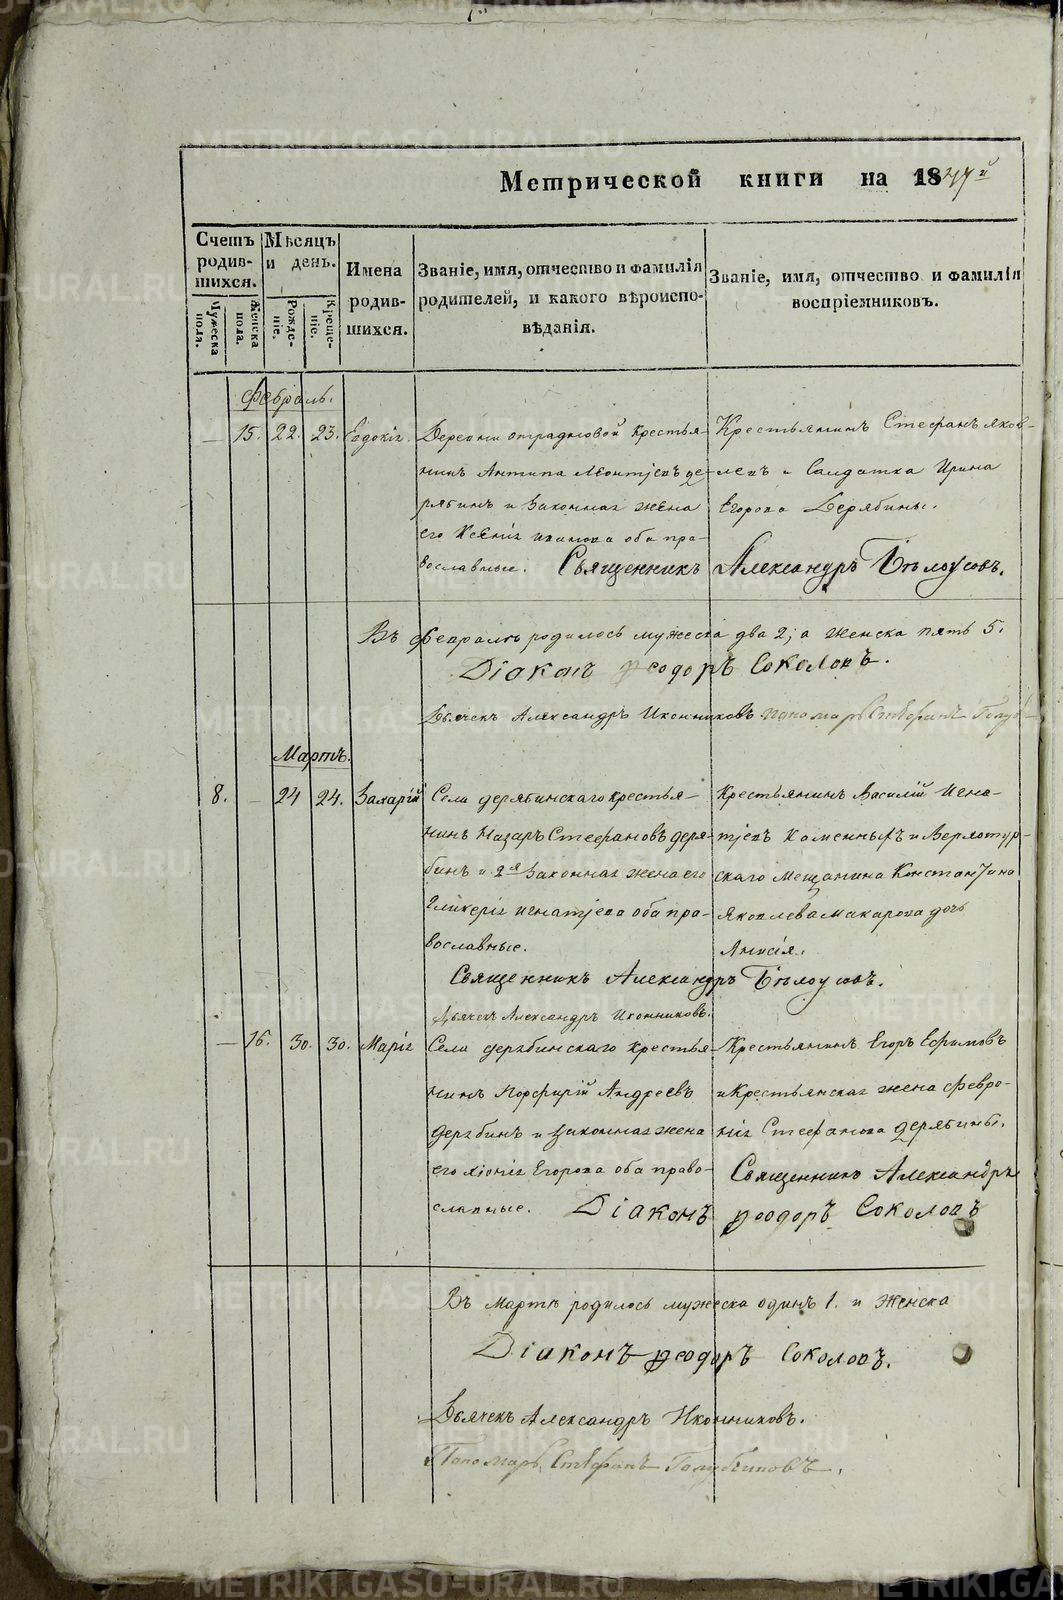 Метрической книги на 1847й
Счетъ родив-шихся.
Мужеска пола.
Женска пола.
Мѣсяцъ и день.
Рожде-ніе.
Креще-ніе.
Имена родив-шихся.
Званіе, имя, отчество и фамилія родителей, и какого вѣроиспо-вѣданія.
Званіе, имя, отчество и фамилія воспріемниковъ.
Февраль.
— 15. 22. 23. Евдокія.
Деревни отрадновой крестья-
нинъ Антипа Леонтіевъ де-
рябинъ и Законная жена
его Ксенія иванова оба пра-
вославные.
Крестьянинъ Стефанъ яков-
левъ и Салдатка Ирина
Егорова Дерябины.
Священникъ Александръ Бѣлоусовъ.
Въ Февралѣ родилось мужеска два 2; а женска пять 5.
Діаконъ Ѳеодоръ Соколовъ.
Дьячекъ Александръ Иконниковъ Пономарь Стефанъ
Мартъ.
8. — 24 24. Захарій
Села дерябинскаго крестья-
нинъ Назаръ Стефановъ деря-
бинъ и 2я Законная жена его
Гликерія игнатіева оба пра-
вославные.
Крестьянинъ Василій Игна-
тіевъ Каменныхъ и Верхотур-
скаго мещанина Константина
Яковлева Макарова дочь
Анисія.
Священникъ Александръ Бѣлоусовъ.
Дьячекъ Александръ Иконниковъ.
— 16. 30. 30. Марія
Села дерябинскаго крестья-
нинъ Порфирій Андреевъ
дерябинъ и законная жена
его хіонія Егорова оба право-
славные.
Крестьянинъ Егоръ Ефимовъ
и Крестьянская жена февро-
нія Стефанова дерябины.
Священникъ Александръ
Діаконъ Ѳеодоръ Соколовъ
Въ Мартѣ родилось мужеска одинъ 1. и Женска
Діаконъ Ѳеодоръ Соколовъ.
Дьячекъ Александръ Иконниковъ.
Пономарь Стефанъ Голубчиковъ.
METRIKI.GASO-URAL.RU